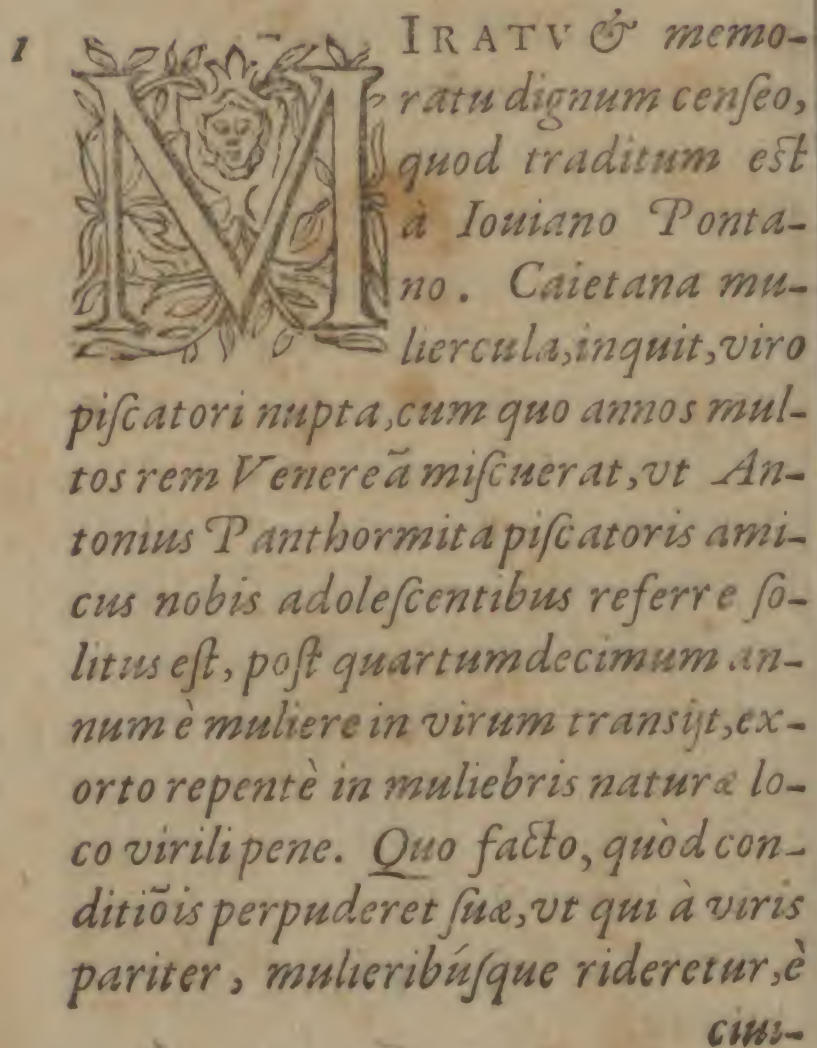 1
MIRATV & memo-
ratu dignum censeo,
quod traditum est
à Iouiano Ponta-
no. Caietana mu-
liercula, inquit, viro
piscatori nupta, cum quo annos mul-
tos rem Venereã miscuerat, vt An-
tonius Panthormita piscatoris ami-
cus nobis adolescentibus referre so-
litus est, post quartumdecimum an-
num è muliere in virum transijt, ex-
orto repentè in muliebris naturæ lo-
co virili pene. Quo facto, quòd con-
ditiõis perpuderet suæ, vt qui à viris
pariter, mulieribúsque rideretur, è
ciui-